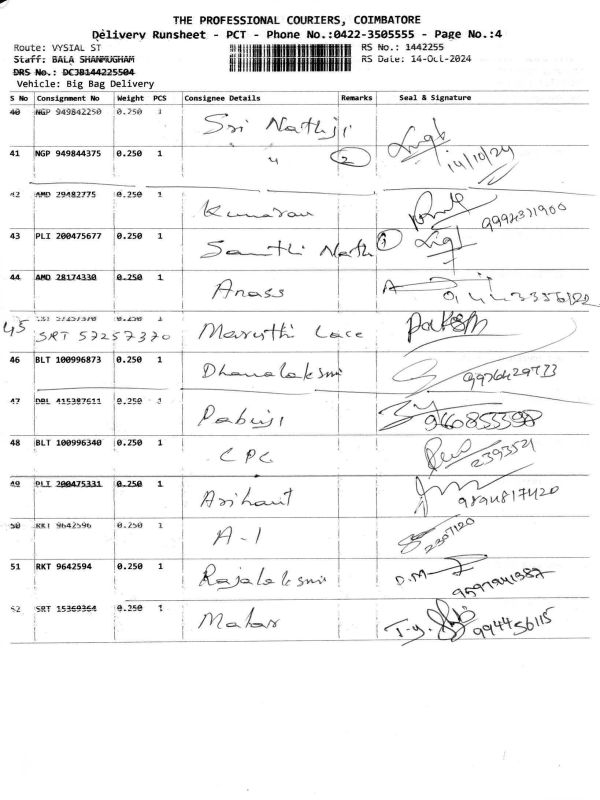 THE PROFESSIONAL COURIERS, COIMBATORE
Delivery Runsheet - PCT - Phone No.:0422-3505555 - Page No.:4
Route: VYSIAL ST RS No.: 1442255
Staff: BALA SHANMUGHAM RS Date: 14-Oct-2024
DRS No.: DCJB144225504
Vehicle: Big Bag Delivery
S No Consignment No Weight PCS Consignee Details Remarks Seal & Signature
40 NGP 949842250 0.250 1 Sri Nathji
41 NGP 949844375 0.250 1 " 2 14/10/24
42 AMD 29482775 0.250 1 Kumaran
43 PLI 200475677 0.250 1 Santhi Nath
44 AMD 28174330 0.250 1 Anass
45 SRT 57257370 Maruthi Lace
46 BLT 100996873 0.250 1 Dhanalaksmi
47 DBL 415387611 0.250 1 Pabuji
48 BLT 100996340 0.250 1 CPC 2393521
49 PLI 200475331 0.250 1 Arihant 9894817420
50 RKT 9642596 0.250 1 A-1 2307120
51 RKT 9642594 0.250 1 Rajalaksmi D.M
52 SRT 15369364 0.250 1 Malar 994456115